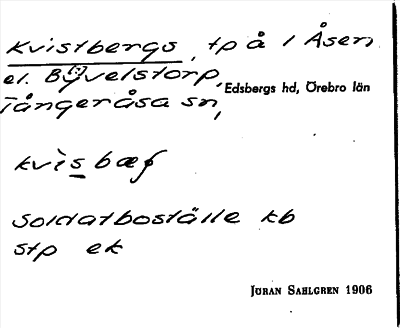 Kvistbergs, tp å / Åsen
el. B(?)yvelstorp,
Edsbergs hd, Örebro län
Tångeråsa sn,
kvìs bæʃ
Soldatboställe kb
stp ek
JÖRAN SAHLGREN 1906